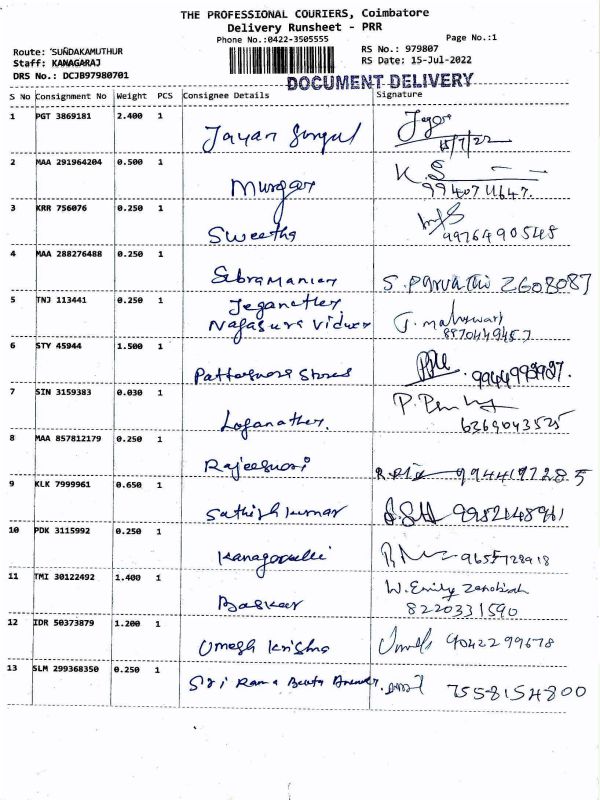 THE PROFESSIONAL COURIERS, Coimbatore
Delivery Runsheet - PRR
Phone No.:0422-3505555
Page No.:1
Route: 'SUNDAKAMUTHUR
Staff: KANAGARAJ
DRS No.: DCJB97980701
RS No.: 979807
RS Date: 15-Jul-2022
DOCUMENT DELIVERY
S No Consignment No Weight PCS Consignee Details Signature
1 PGT 3869181 2.400 1
Jayan
15/7/22
2 MAA 291964204 0.500 1
Murgan K.S
9940711647.
3 KRR 756076 0.250 1
Sweetha 9976490548
4 MAA 288276488 0.250 1
Subramanian S. Parvathi 2608087
5 TNJ 113441 0.250 1
Jeganathen
Nagasure Vidwer J. maheswari
8870449457
6 STY 45944 1.500 1
Stores 9944998987.
7 SIN 3159383 0.030 1
Loganathen. P.
6369043525
8 MAA 857812179 0.250 1
Rajeeswori 9944197285
9 KLK 7999961 0.650 1
Sathishkumar 9952148961
10 PDK 3115992 0.250 1
Kanagavalli 9655728918
11 TMI 30122492 1.400 1
Baskar W. Emily Zenobiah
8220331590
12 IDR 50373879 1.200 1
Umegh Krishna 9042299678
13 SLM 299368350 0.250 1
Sri Rama 7558154800